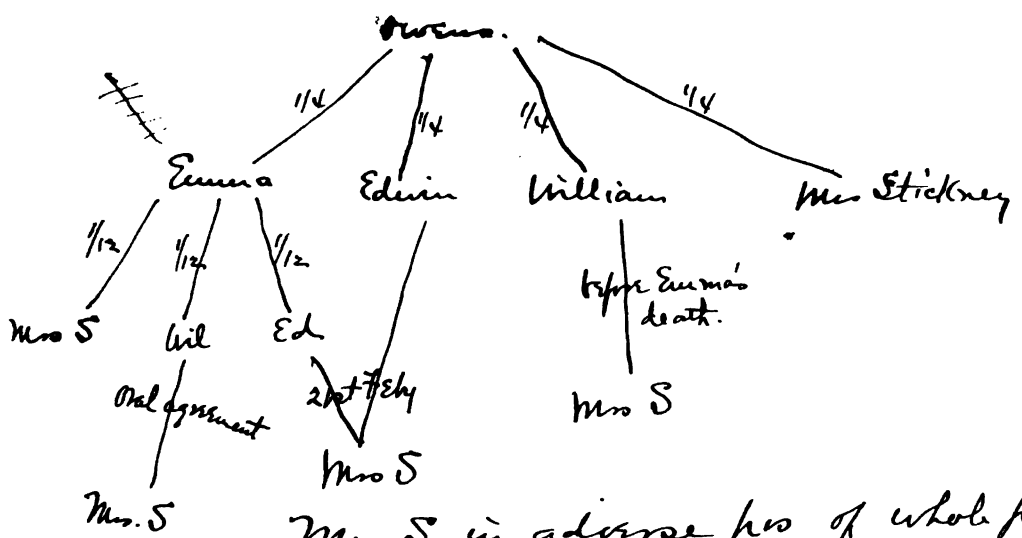 Owens.
1/4 1/4 1/4 1/4
Emma Edwin William Mrs Stickney
1/12 1/12 1/12
before Emma's
death.
Mrs S Wil Ed
Oral agreement 21st Feby
Mrs S
Mrs S
Mrs. S
Mrs S in adverse pos of whole